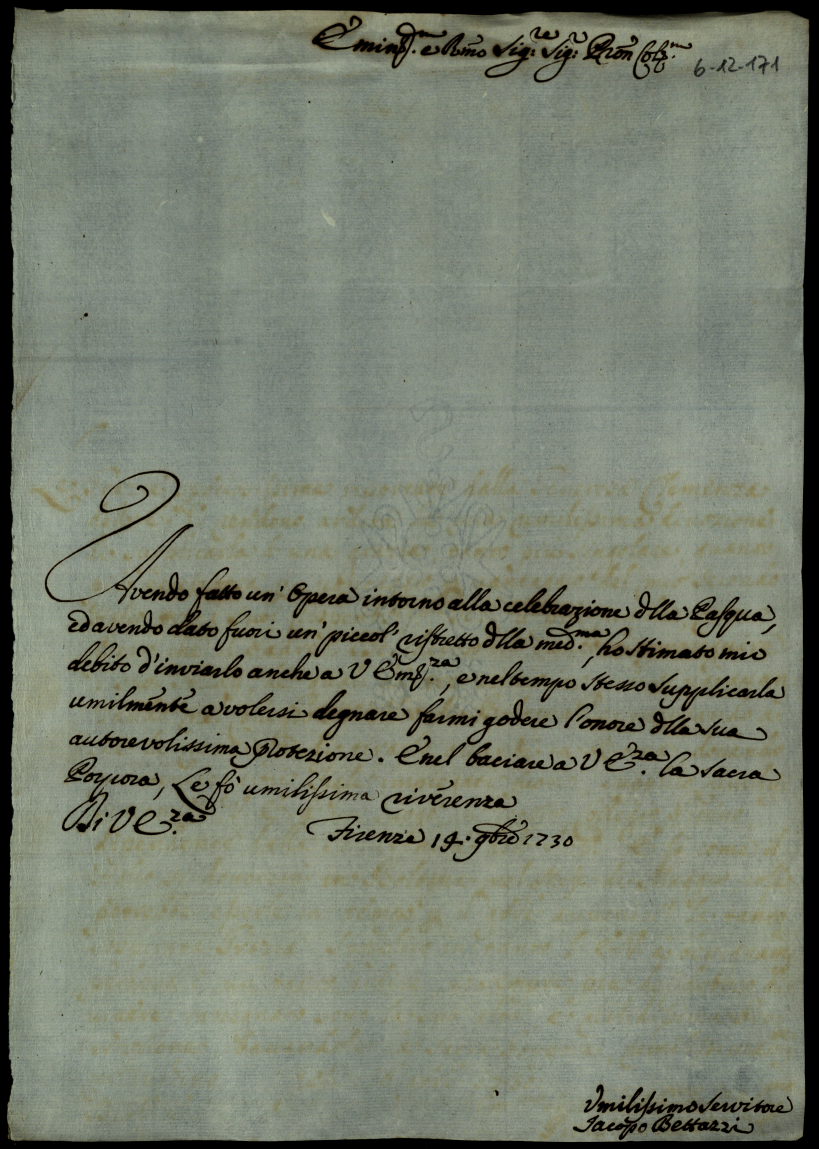 Emin.mo e Rmo Sig.re Sig.r Pron Col.mo
6-12-171
Avendo fatto un' Opera intorno alla celebrazione dlla Pasqua,
ed avendo dato fuori un' piccol' ristretto dlla med.ma, ho stimato mio
debito d'inviarlo anche a V Em.za, e nel tempo stesso supplicarla
umilmente a volersi degnare farmi godere l'onore dlla sua
autorevolissima Protezione. E nel baciare a V E.za la sacra
Porpora, Le fò umilissima riverenza
Di V E.za
Firenze 14. 9bre 1730
Umilissimo Servitore
Jacopo Bettazzi